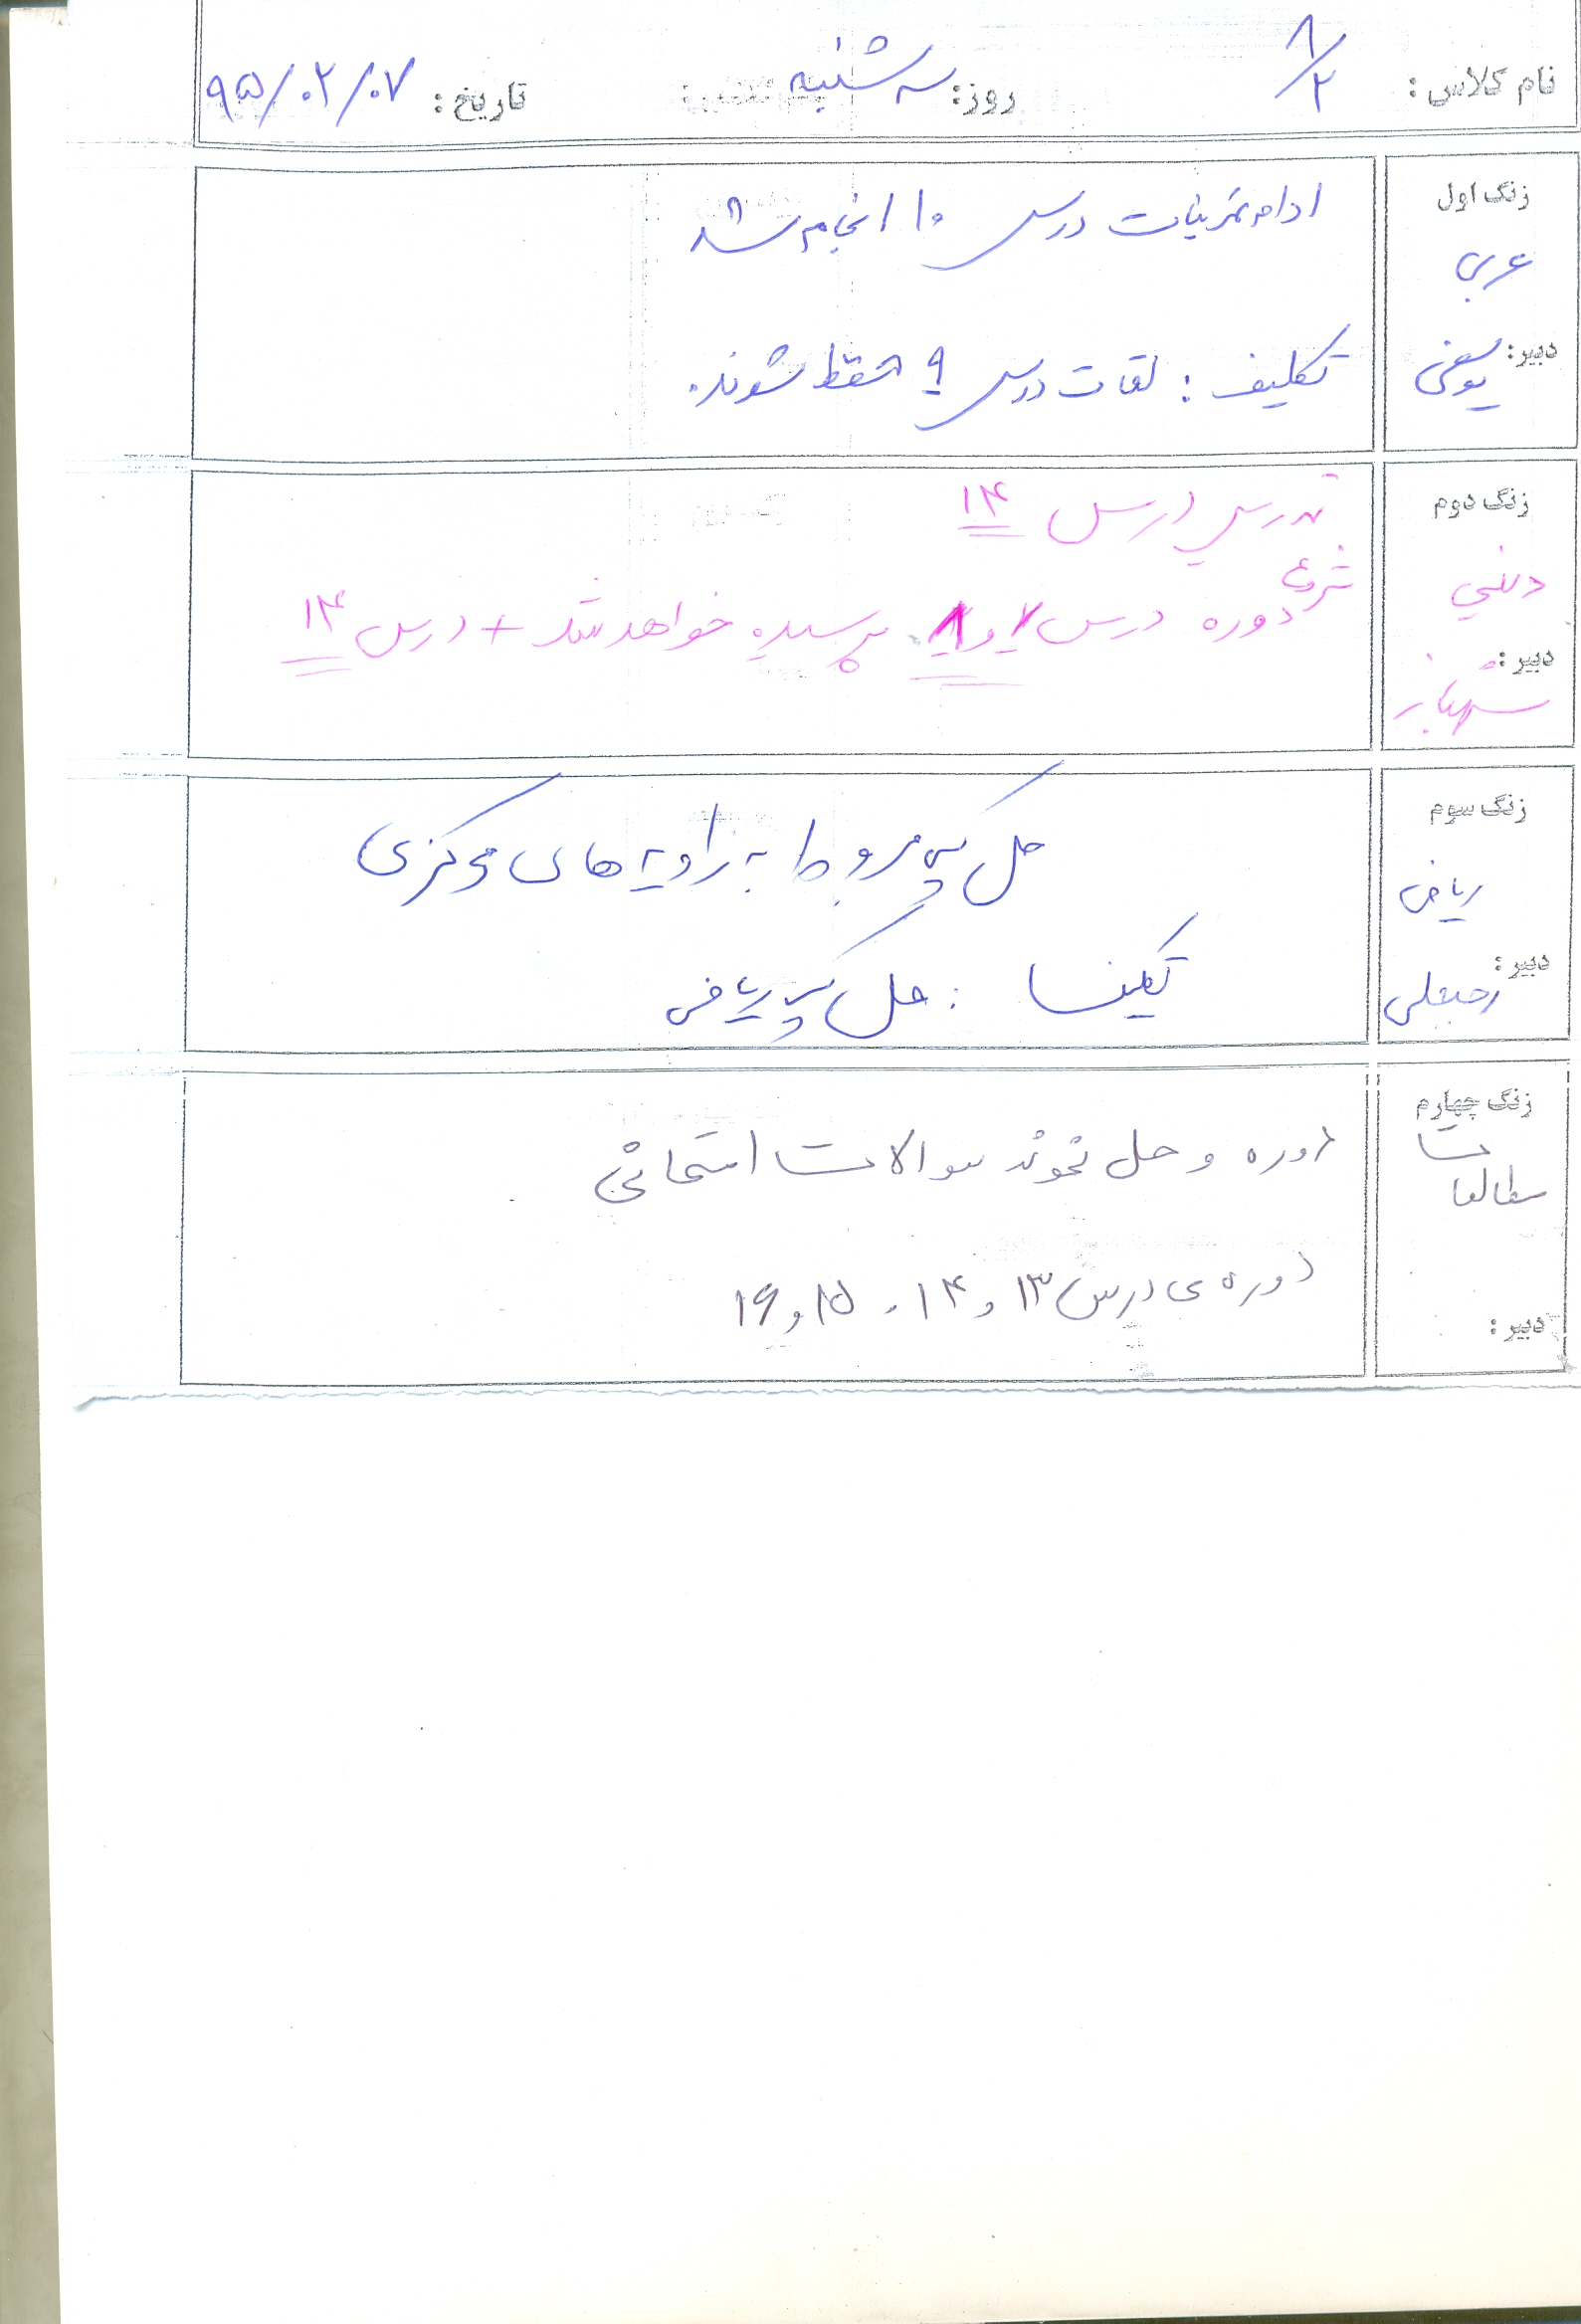 نام کلاس: ۸/۲ روز: سه شنبه تاریخ: ۹۵/۰۲/۰۷
زنگ اول
عربی
دبیر: یوسفی
ادامه تمرینات درس ۱۰ انجام شد
تکلیف: لغات درس ۹ حفظ شوند.
زنگ دوم
دینی
دبیر:
تدریس درس ۱۴
شروع دوره درس ۷ و ۸ پرسیده خواهد شد + درس ۱۴
زنگ سوم
ریاضی
دبیر: رجبعلی
حل پلی مربوط به زاویه های مرکزی
تکلیف: حل پلی ریاضی
زنگ چهارم
مطالعات
دبیر:
دوره و حل نمونه سوالات امتحانی
دوره ی درس ۱۳ و ۱۴ و ۱۵ و ۱۶